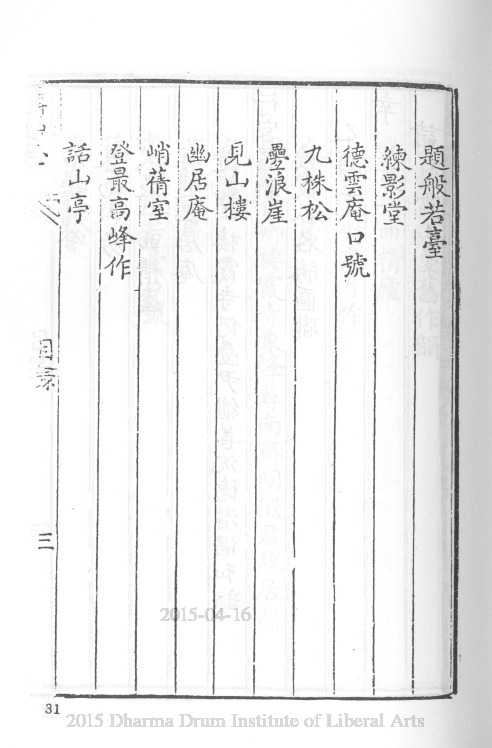 題般若臺
練影堂
德雲庵口號
九株松
疊浪崖
見山樓
幽居庵
峭蒨室
登最高峰作
話山亭
目录
三
31
2015-04-16
2015 Dharma Drum Institute of Liberal Arts